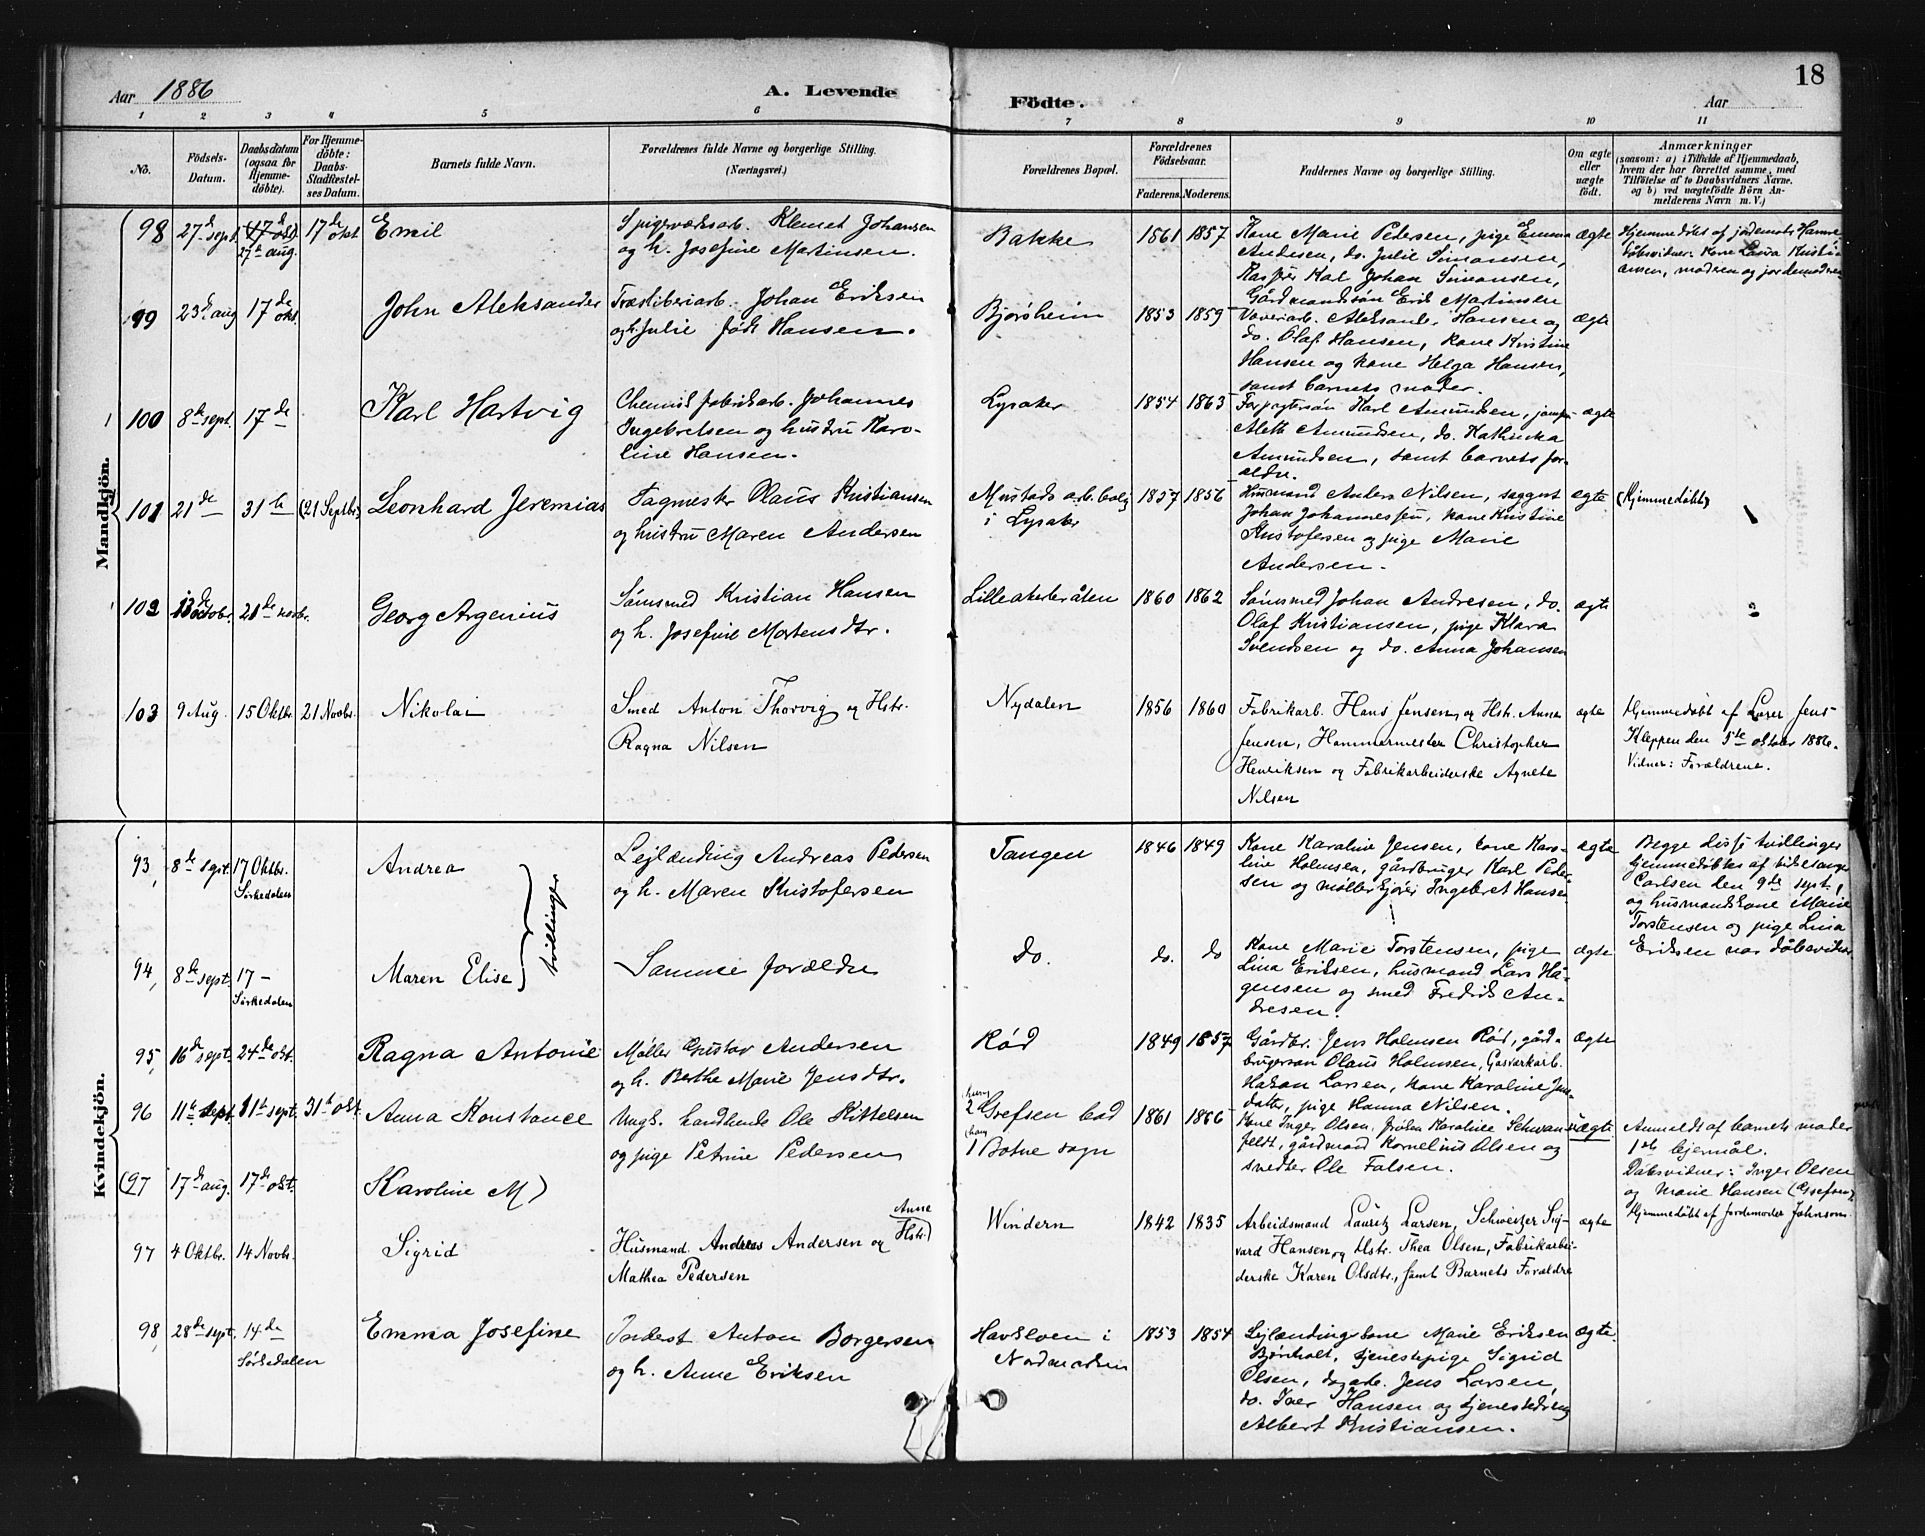 Aar 1886
A. Levende
Födte.
Aar
18
1 2 3 4 5 6 7 8 9 10 11
No.
Födsels-
Datum.
Daabsdatum
(ogsaa for
Hjemme-
döbte).
For Hjemme-
döbte:
Daabs-
Stadfæstel-
ses Datum.
Barnets fulde Navn.
Forældrenes fulde Navne og borgerlige Stilling.
(Næringsvei.)
Forældrenes Bopæl.
Forældrenes
Födselsaar.
Faderens. Moderens.
Faddernes Navne og borgerlige Stilling.
Om ægte
eller
uægte
födt.
Anmærkninger
(saasom: a) i Tilfælde af Hjemmedaab,
hvem der har forrettet samme, med
Tilföielse af to Daabsvidners Navne.
og b) ved uægtefödte Börn An-
melderens Navn m. V.)
Mandkjön.
98 27de sept. 17de okt. 27de aug. 17de okt. Emil
Spigerværksarb. Klemet Johansen
og h. Josefine Martinsen.
Bakke 1861 1857
Kone Marie Pedersen, pige Emma
Andersen, do. Julie Simonsen,
Karl Johan Simonsen,
Gårdmandssøn Erik Martinsen
ægte
Hjemmedøbt af jordemoder
Døbsvidner: Kone Laura Kristi-
ansen, moderen og jordemoderen
99 23de aug. 17de okt. John Aleksander
Træsliberiarb. Johan Eriksen
og h. Julie født Hansen.
Bjørsheim 1853 1859
Væveriarb. Aleksander Hansen og
do. Olaf Hansen, kone Kristine
Hansen og kone Helga Hansen,
samt barnets moder.
ægte
100 8de sept. 17de Karl Hartvig
Chemisk fabrikarb. Johannes
Ingebretsen og hustru Karo-
line Hansen.
Lysaker 1854 1863
Forpagtersøn Karl Amundsen, jomfru
Aleth Amundsen, do. Kathinka
Amundsen, samt barnets for-
ældre.
ægte
101 21de 31te (21 Septbr.) Leonhard Jeremias
Fagmester Olaus Kristiansen
og hustru Maren Andersen
Mustads arb. bolig
i Lysaker
1857 1856
Husmand Anders Nilsen, saggut
Johan Johannessen, kone Kristine
Kristofersen og pige Marie
Andersen.
ægte
(Hjemmedøbt)
102 13de octobr. 21de novbr. Georg Argenius
Sømsmed Kristian Hansen
og h. Josefine Mortensdtr.
Lilleakerbråten 1860 1862
Sømsmed Johan Andresen, do.
Olaf Kristiansen, pige Klara
Svendsen og do. Anna Johansen
ægte
103 9 Aug. 15 Oktbr. 21 Novbr. Nikolai
Smed Anton Thorvig og Hstr.
Ragna Nilsen
Nydalen 1856 1860
Fabrikarb. Hans Jensen og Hstr. Anne
Jensen, Hammermester Christopher
Henriksen og Fabrikarbeiderske Agnete
Nilsen
ægte
Hjemmedøbt af Lærer Jens
Kleppen den 5te oktober 1886.
Vidner: Forældrene.
Kvindekjön.
93, 8de sept. 17 Oktbr.
Sørkedalen
Andrea
tvillinger
Lejlænding Andreas Pedersen
og h. Maren Kristofersen
Tangen 1846 1849
Kone Karoline Jensen, kone Karo-
line Holmsen, gårdbruger Karl Peder-
sen og møller Ingebret Hansen
ægte
Begge disse tvillinger
hjemmedøbtes af kirkesanger
Carlsen den 9de sept.,
og husmandskone Marie
Torstensen og pige Lina
Eriksen var dåbsvidner
94, 8de sept. 17 –
Sørkedalen
Maren Elise
Samme forældre
do. do. do
Kone Marie Torstensen, pige
Lina Eriksen, husmand Lars Hå-
gensen og smed Fredrik An-
dresen.
ægte
95, 16de sept. 24de okt. Ragna Antonie
Møller Gustav Andersen
og h. Berthe Marie Jensdtr.
Rød 1849 1857
Gårdbr. Jens Holmsen Rød, gård-
brugersøn Olaus Holmsen, Gasværkarb.
Hakon Larsen, kone Karoline Jens-
datter, pige Hanna Nilsen.
ægte
96 11te sept. 11te sept. 31te okt. Anna Konstance
Ungk. handlende Ole Kittelsen
og pige Petrine Pedersen
(hun) 2 Grefsen bad
(han) 1 Botne sogn
1861 1866
Kone Inger Olsen, frøken Karoline Schwan-
feldt, gårdmand Kornelius Olsen og
snedker Ole Falsen.
uægte
Anmeldt af barnets moder
1ste lejermål.
Dåbsvidner: Inger Olsen
og Marie Hansen (Grefsen)
Hjemmedøbt af Jordemoder Johnson.
(97 17de aug. 17de okt. Karoline M)
97 4 Oktbr. 14 Novbr. Sigrid
Husmand Andreas Andersen og Hstr. Anne
Mathea Pedersen
Windern 1842 1835
Arbeidsmand Lauritz Larsen, Schweitzer Sig-
vard Hansen og Hstr. Thea Olsen, Fabrikarbei-
derske Karen Olsdtr., samt Barnets Forældre
ægte
98, 28de sept. 14de
Sørkedalen
Emma Josefine
Inderst Anton Borgersen
og h. Anne Eriksen
Havkloven i
Nordmarken
1853 1854
Lejlændingskone Marie Eriksen
Bjørnholt, tjenestepige Sigrid
Olsen, dagarb. Jens Larsen,
do. Iver Hansen og tjenestedreng
Albert Kristiansen.
ægte.